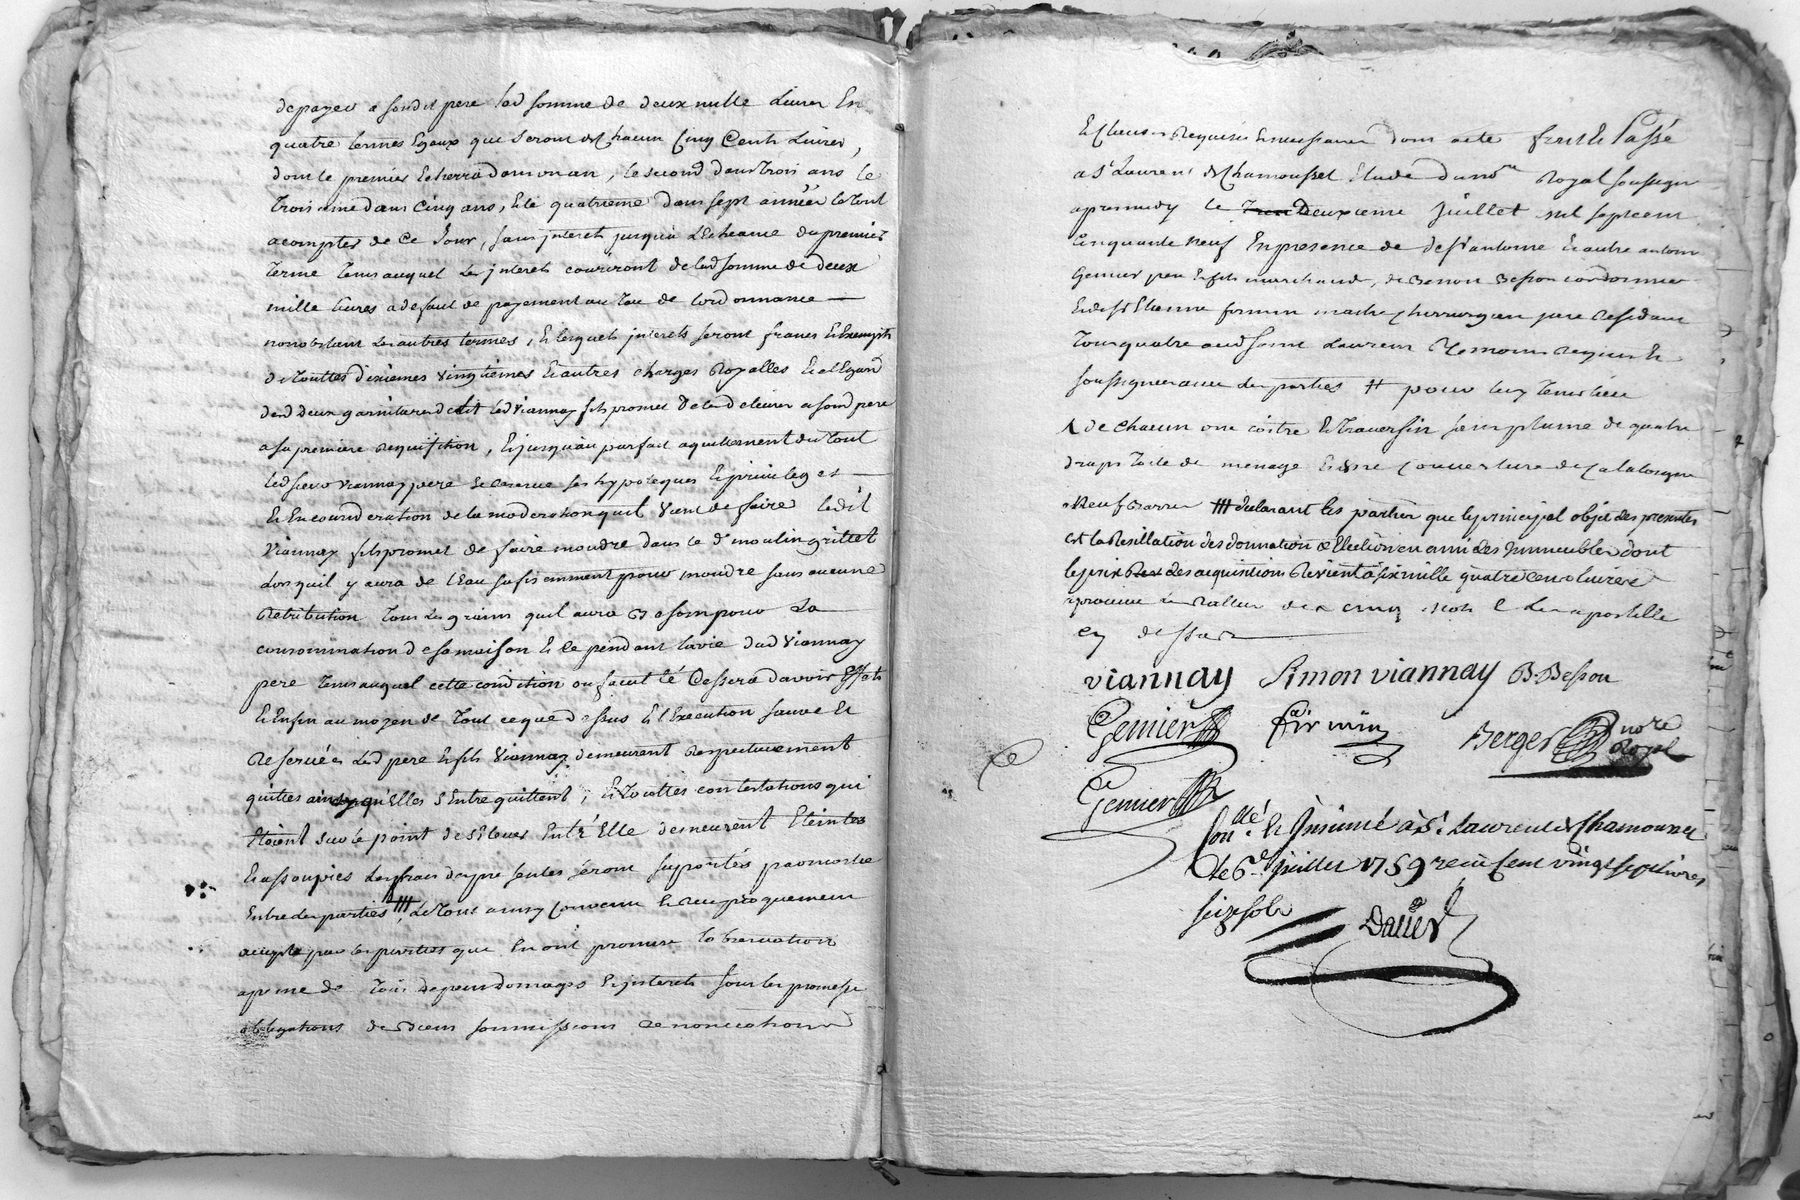 de payer a sondit pere lad somme de deux mille Livres En
quatre termes Egaux qui seront de Chacun Cinq Cents Livres,
dont le premier Echerra dans un an, le second dans trois ans le
troisieme dans Cinq ans, & le quatrieme dans sept années le tout
a compter de Ce Jour, sans jnterets jusqu'a L'Echeance du premier
terme tems auquel Les jnterets couriront de lad somme de deux
mille livres a defaut de payement au Taux de Lordonnance
nonobstant Les autres termes, Et lesquels jnterets seront francs Et Exempts
de touttes dixiemes vingtiemes Et autres charges Royalles Et a l'Egard
desd deux garnitures de lit led Viannay fils promet de les delivrer a sond pere
a sa premiere requisition, Et jusqu'au parfait aquittement du Tout
led sieur Viannay pere se reserve ses hypoteques Et privileges
Et En consideration de la moderation quil vient de faire ledit
Viannay fils promet de faire moudre dans le d moulin grillet
Lorsquil y aura de l'Eau sufisemment pour moudre sans aucune
Retribution Tous Les grains quil aura Besoin pour La
consommation de sa maison Et Ce pendant la vie dud Viannay
pere tems auquel cette condition ou faculté Cessera d'avoir Effets
Et Enfin au moyen de Tout ce que dessus Et l'Execution sauve Et
Reservée Led pere Et fils Viannay demeurent Respectivement
quittes ainsy qu'Elles s'Entre quittent, Et Touttes contestations qui
Etoient sur le point de s'Elever Entr'Elle demeurent Eteintes
Et assoupies Les frais des presentes seront suportés par moitié
Entre les parties ###, Le Tout ainsy Convenu Et reciproquement
accepté par les parties que En ont promis lobservation
a peine de Tous depens domages Et jnterets sous les promesse
obligations de biens soumissions renonciations
Et Clauses Requises & necessaires dont acte fait Et Passé
a St Laurent de Chamousset Etude du nore Royal soussigné
apres midy le Deuxieme Juillet mil sept cent
Cinquante Neuf En presence de de sr antoine Et autre antoine
Genier pere Et fils marchands, de Benon Besson cordonnier
Et de sr Etienne firmin maitre chirurgien jure Residant
Tous quatre aud saint Laurent Temoins requis Et
soussignes avec les parties # pour luy Tenir lieu
Λ de Chacun une coitre Et traversin sans plume de quatre
draps Toile de menage Et une Couverture de Catalogne
Neuf ### declarant les parties que le principal objet des presentes
est la Resillation des donnation & Election en ami des Immeubles dont
le prix des acquisitions Revient a six mille quatre Cent livres
aprouvé La Rature de cinq mots & Les apostille
Cy dessus
viannay Simon viannay B. Besson
Genier firmin Berger nore Royal
Genier
Conlé. Et Jnsinué à St. Laurent de Chamousset
Le 6e. juillet 1759 reçu Cent vingt sept livres
seize sols